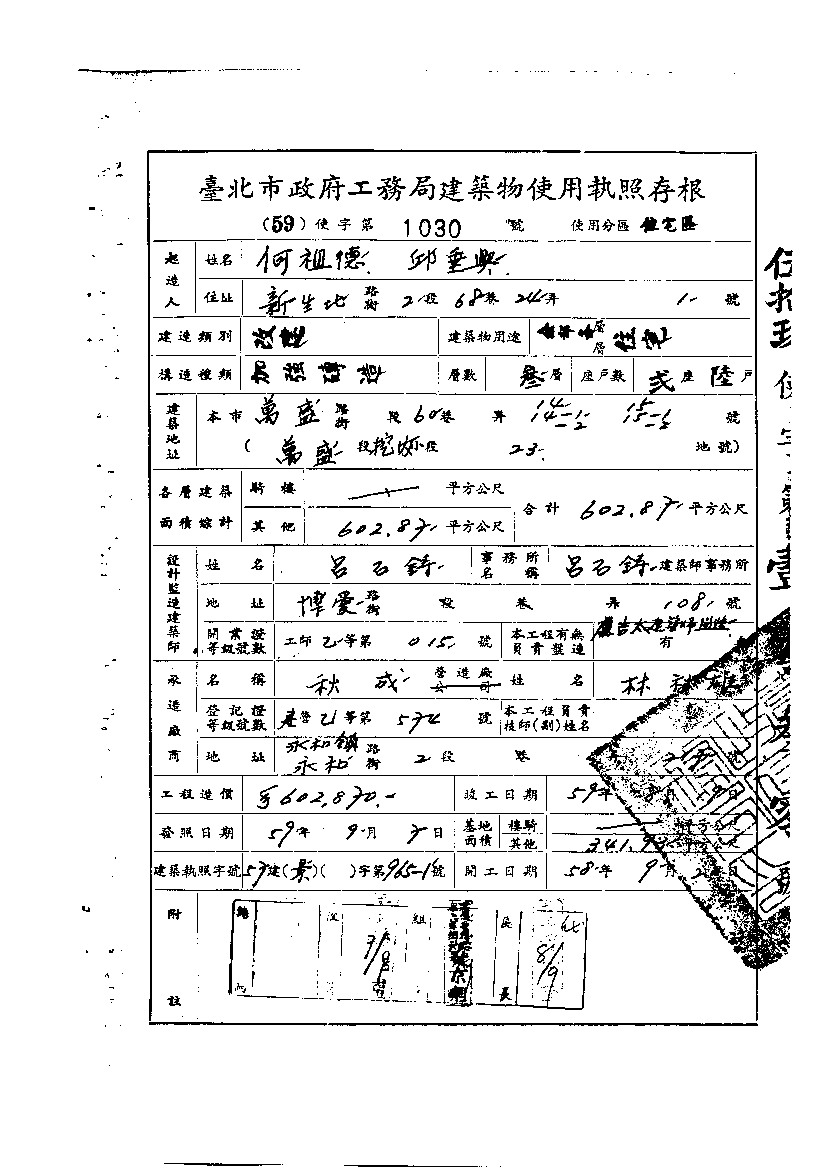 臺北市政府工務局建築物使用執照存根
(59)使字第 1030 號 使用分區 住宅區
起造人 姓名 何祖德 邱垂興
住址 新生北 路街 2段 68巷 24弄 1 號
建造類別 改建 建築物用途 層層 住宅
構造種類 加強磚造 層數 叁層 座戶數 弍座 陸戶
建築地址 本市 萬盛 路街 段 60巷 弄 14 14-1 14-2 15 15-1 15-2 號
(萬盛段挖坳小段 23 地號)
各層建築面積總計 騎樓 平方公尺 合計 602.87 平方公尺
其他 602.87 平方公尺
設計監造建築師 姓名 呂石鑄 事務所名稱 呂石鑄 建築師事務所
地址 博愛 路街 段 巷 弄 108 號
開業證等級號數 工師乙等第 015 號 本工程有無負責監造 有
承造廠商 名稱 秋成 營造廠公司 姓名 林秋雄
登記證等級號數 營乙等第 574 號 本工程負責技師(副)姓名
地址 永和鎮永和 路街 2段 巷 號
工程造價 602,870.- 竣工日期 59年 月 日
發照日期 59年 9月 日 基地面積 樓騎 平方公尺
其他 341.93 平方公尺
建築執照字號 57建(景)( )字第965-1號 開工日期 58年 9月 2 日
附註 組 長 8/9
使字第 壹 號